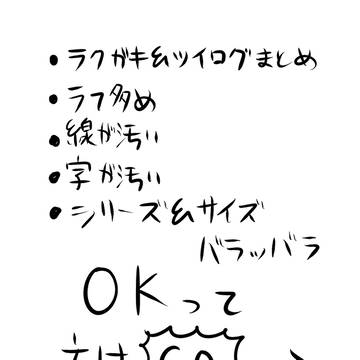 ・ラクガキ&ツイログまとめ
・ラフ多め
・線が汚い
・字が汚い
・シリーズ&サイズ
バラッバラ
OKって
方は GO